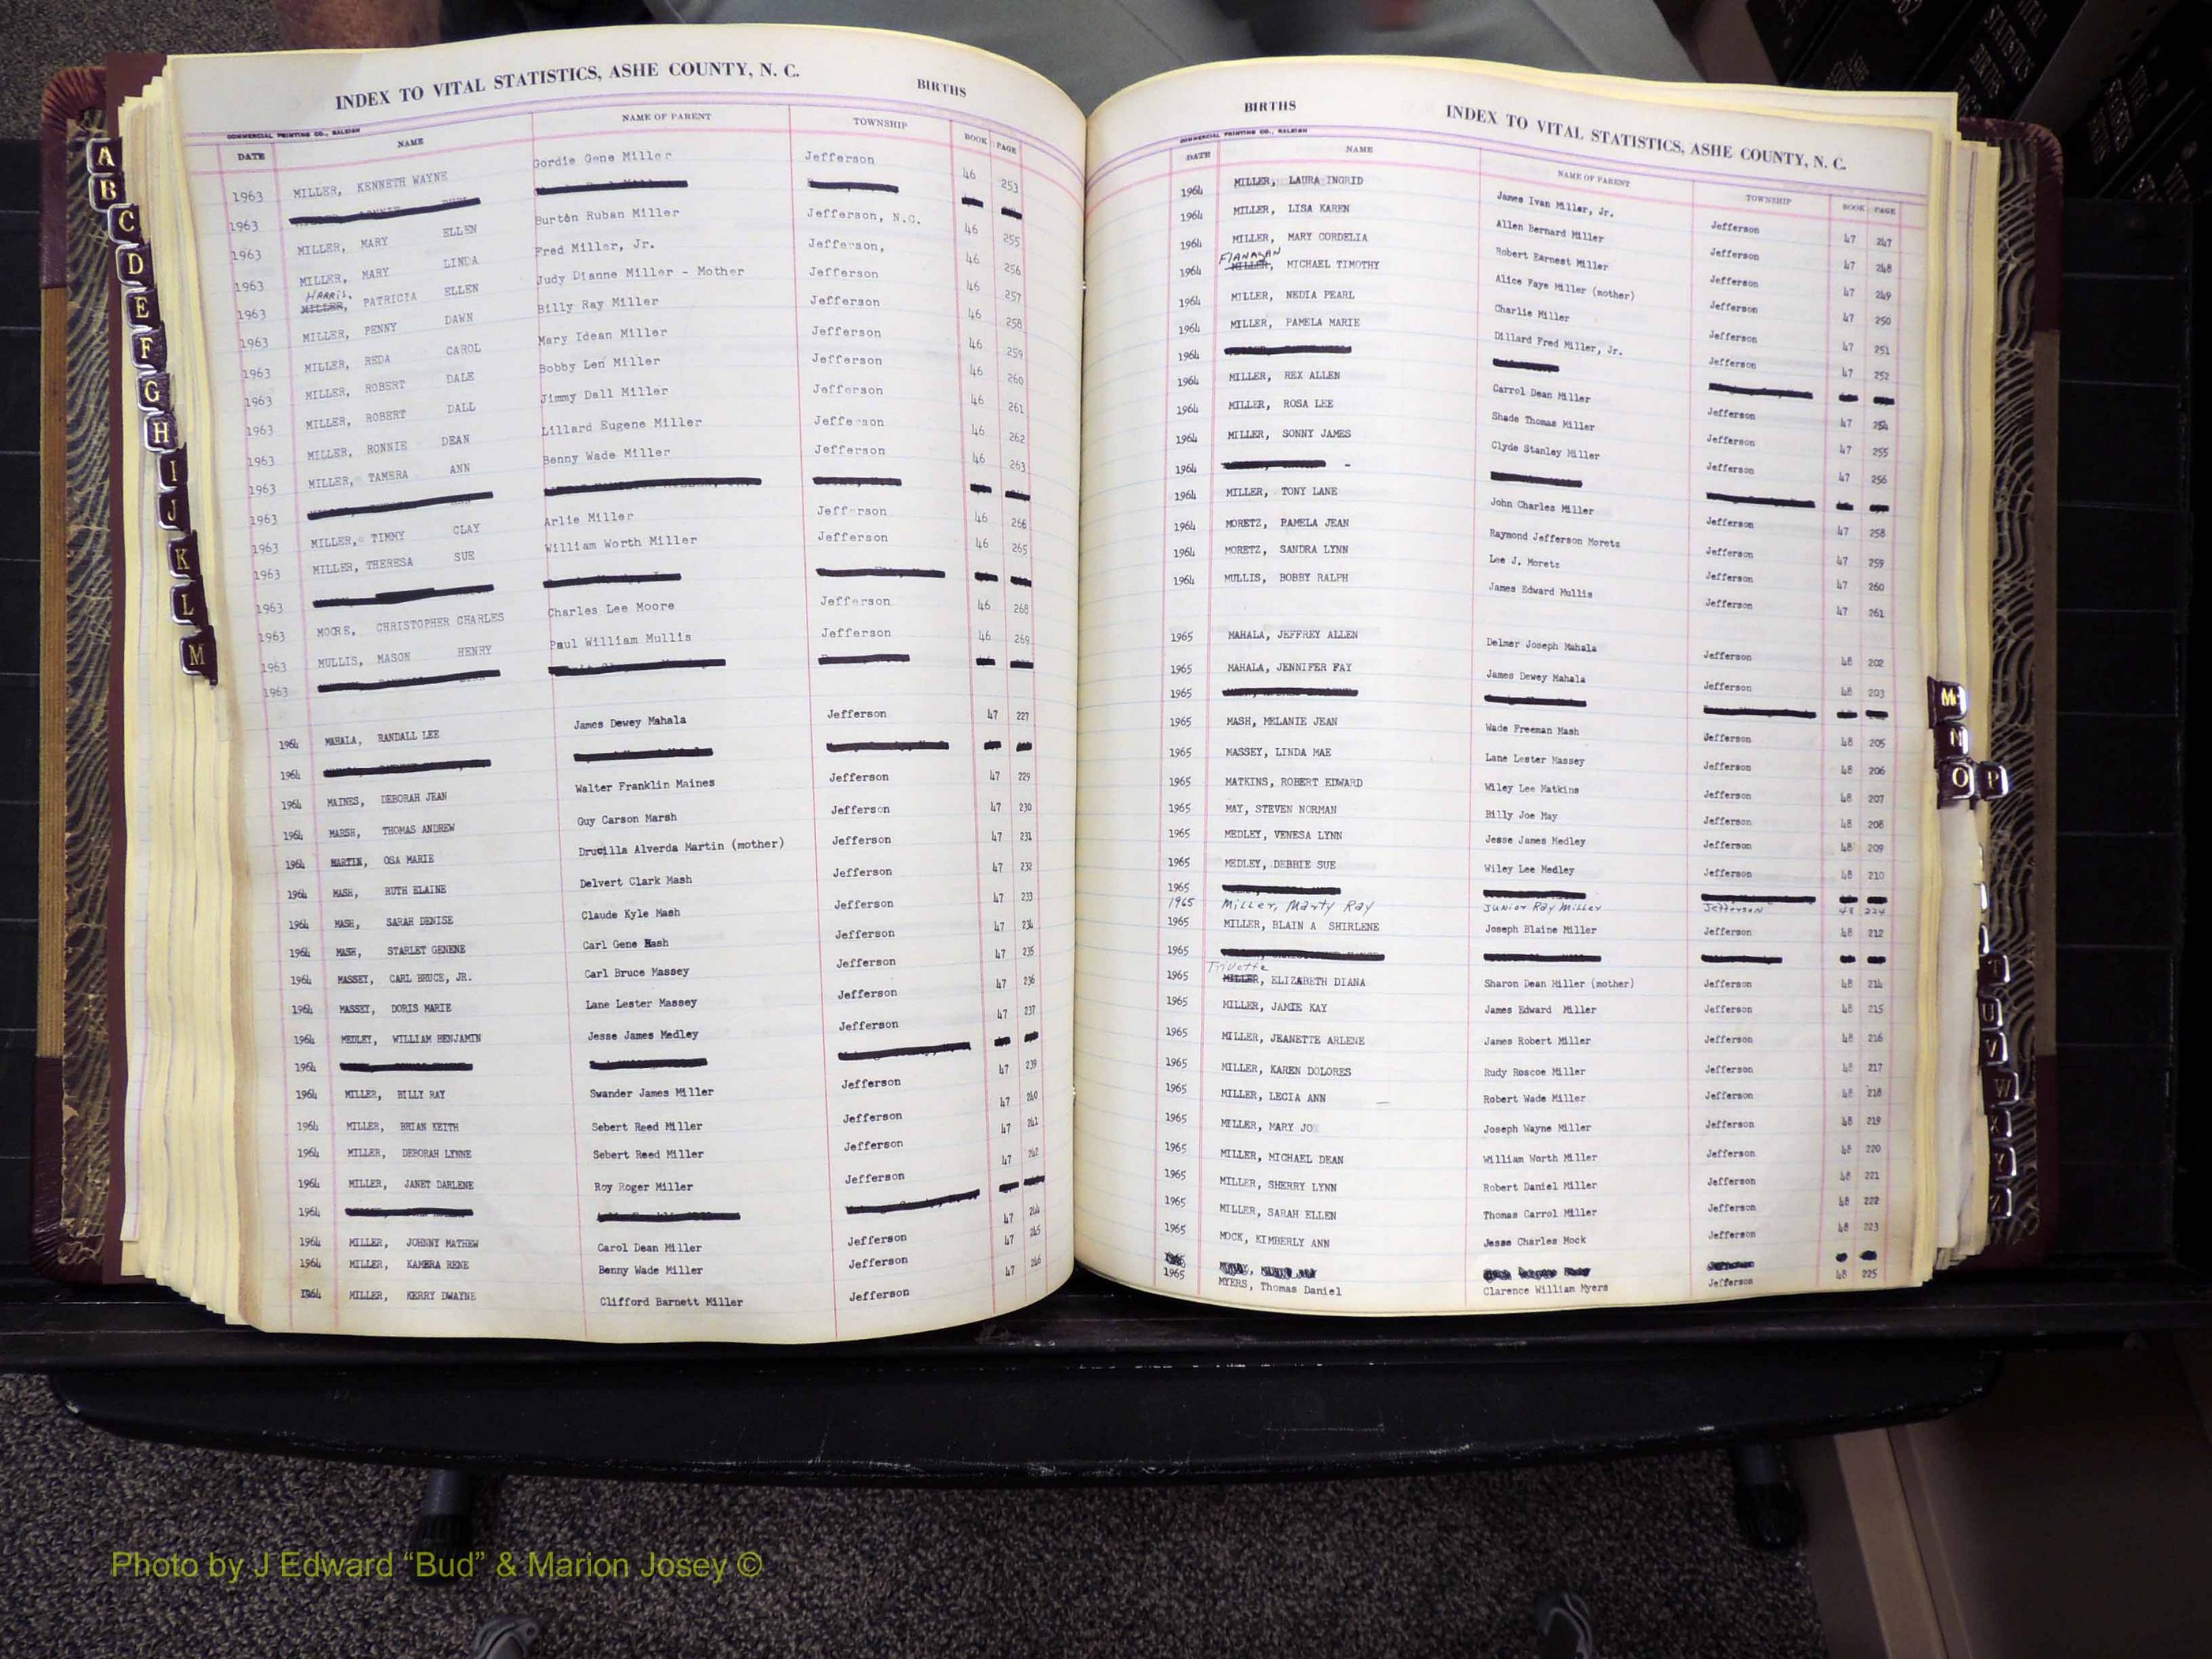 INDEX TO VITAL STATISTICS, ASHE COUNTY, N. C. BIRTHS
COMMERCIAL PRINTING CO., RALEIGH
DATE NAME NAME OF PARENT TOWNSHIP BOOK PAGE
1963 MILLER, KENNETH WAYNE Gordie Gene Miller Jefferson 46 253
1963
1963 MILLER, MARY ELLEN Burton Ruban Miller Jefferson, N.C. 46 255
1963 MILLER, MARY LINDA Fred Miller, Jr. Jefferson, 46 256
HARRIS,
1963 MILLER, PATRICIA ELLEN Judy Dianne Miller - Mother Jefferson 46 257
1963 MILLER, PENNY DAWN Billy Ray Miller Jefferson 46 258
1963 MILLER, REDA CAROL Mary Idean Miller Jefferson 46 259
1963 MILLER, ROBERT DALE Bobby Len Miller Jefferson 46 260
1963 MILLER, ROBERT DALL Jimmy Dall Miller Jefferson 46 261
1963 MILLER, RONNIE DEAN Lillard Eugene Miller Jefferson 46 262
1963 MILLER, TAMERA ANN Benny Wade Miller Jefferson 46 263
1963
1963 MILLER, TIMMY CLAY Arlie Miller Jefferson 46 266
1963 MILLER, THERESA SUE William Worth Miller Jefferson 46 265
1963
1963 MOORE, CHRISTOPHER CHARLES Charles Lee Moore Jefferson 46 268
1963 MULLIS, MASON HENRY Paul William Mullis Jefferson 46 269
1963
1964 MAHALA, RANDALL LEE James Dewey Mahala Jefferson 47 227
1964
1964 MAINES, DEBORAH JEAN Walter Franklin Maines Jefferson 47 229
1964 MARSH, THOMAS ANDREW Guy Carson Marsh Jefferson 47 230
1964 MARTIN, OSA MARIE Drucilla Alverda Martin (mother) Jefferson 47 231
1964 MASH, RUTH ELAINE Delvert Clark Mash Jefferson 47 232
1964 MASH, SARAH DENISE Claude Kyle Mash Jefferson 47 233
1964 MASH, STARLET GENENE Carl Gene Mash Jefferson 47 234
1964 MASSEY, CARL BRUCE, JR. Carl Bruce Massey Jefferson 47 235
1964 MASSEY, DORIS MARIE Lane Lester Massey Jefferson 47 236
1964 MEDLEY, WILLIAM BENJAMIN Jesse James Medley Jefferson 47 237
1964
1964 MILLER, BILLY RAY Swander James Miller Jefferson 47 239
1964 MILLER, BRIAN KEITH Sebert Reed Miller Jefferson 47 240
1964 MILLER, DEBORAH LYNNE Sebert Reed Miller Jefferson 47 241
1964 MILLER, JANET DARLENE Roy Roger Miller Jefferson 47 242
1964
1964 MILLER, JOHNNY MATHEW Carol Dean Miller Jefferson 47 244
1964 MILLER, KAMERA RENE Benny Wade Miller Jefferson 47 245
1964 MILLER, KERRY DWAYNE Clifford Barnett Miller Jefferson 47 246
BIRTHS INDEX TO VITAL STATISTICS, ASHE COUNTY, N. C.
COMMERCIAL PRINTING CO., RALEIGH
DATE NAME NAME OF PARENT TOWNSHIP BOOK PAGE
1964 MILLER, LAURA INGRID James Ivan Miller, Jr. Jefferson 47 247
1964 MILLER, LISA KAREN Allen Bernard Miller Jefferson 47 248
1964 MILLER, MARY CORDELIA Robert Earnest Miller Jefferson 47 249
FLANAGAN
1964 MILLER, MICHAEL TIMOTHY Alice Faye Miller (mother) Jefferson 47 250
1964 MILLER, NEDIA PEARL Charlie Miller Jefferson 47 251
1964 MILLER, PAMELA MARIE Dillard Fred Miller, Jr. Jefferson 47 252
1964
1964 MILLER, REX ALLEN Carrol Dean Miller Jefferson 47 254
1964 MILLER, ROSA LEE Shade Thomas Miller Jefferson 47 255
1964 MILLER, SONNY JAMES Clyde Stanley Miller Jefferson 47 256
1964
1964 MILLER, TONY LANE John Charles Miller Jefferson 47 258
1964 MORETZ, PAMELA JEAN Raymond Jefferson Moretz Jefferson 47 259
1964 MORETZ, SANDRA LYNN Lee J. Moretz Jefferson 47 260
1964 MULLIS, BOBBY RALPH James Edward Mullis Jefferson 47 261
1965 MAHALA, JEFFREY ALLEN Delmer Joseph Mahala Jefferson 48 202
1965 MAHALA, JENNIFER FAY James Dewey Mahala Jefferson 48 203
1965
1965 MASH, MELANIE JEAN Wade Freeman Mash Jefferson 48 205
1965 MASSEY, LINDA MAE Lane Lester Massey Jefferson 48 206
1965 MATKINS, ROBERT EDWARD Wiley Lee Matkins Jefferson 48 207
1965 MAY, STEVEN NORMAN Billy Joe May Jefferson 48 208
1965 MEDLEY, VENESA LYNN Jesse James Medley Jefferson 48 209
1965 MEDLEY, DEBBIE SUE Wiley Lee Medley Jefferson 48 210
1965
1965 Miller, Marty Ray Junior Ray Miller Jefferson 48 224
1965 MILLER, BLAIN A SHIRLENE Joseph Blaine Miller Jefferson 48 212
1965
Trivette
1965 MILLER, ELIZABETH DIANA Sharon Dean Miller (mother) Jefferson 48 214
1965 MILLER, JAMIE KAY James Edward Miller Jefferson 48 215
1965 MILLER, JEANETTE ARLENE James Robert Miller Jefferson 48 216
1965 MILLER, KAREN DOLORES Rudy Roscoe Miller Jefferson 48 217
1965 MILLER, LECIA ANN Robert Wade Miller Jefferson 48 218
1965 MILLER, MARY JO Joseph Wayne Miller Jefferson 48 219
1965 MILLER, MICHAEL DEAN William Worth Miller Jefferson 48 220
1965 MILLER, SHERRY LYNN Robert Daniel Miller Jefferson 48 221
1965 MILLER, SARAH ELLEN Thomas Carrol Miller Jefferson 48 222
1965 MOCK, KIMBERLY ANN Jesse Charles Mock Jefferson 48 223
1965 MYERS, Thomas Daniel Clarence William Myers Jefferson 48 225
A
B
C
D
E
F
G
H
I
J
K
L
M
Mc
N
O P
T
U
V
W
X
Y
Z
Photo by J Edward “Bud” & Marion Josey ©